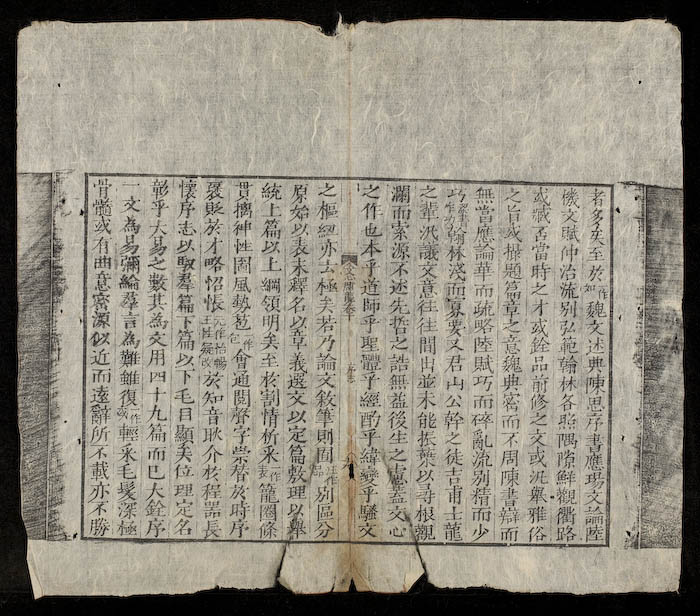 者多矣至於一作如魏文述典陳思序書應瑒文論陸
機文賦仲治流別弘範翰林各照隅隙鮮觀衢路
或臧否當時之才或銓品前修之文或汎舉雅俗
之旨或撮題篇章之意魏典密而不周陳書辯而
無當應論華而疏略陸賦巧而碎亂流別精而少
巧翰林淺而寡要又君山公幹之徒吉甫士龍
之輩汎議文意往往間出並未能振葉以尋根觀
瀾而索源不述先哲之誥無益後生之慮蓋文心
之作也本乎道師乎聖體乎經酌乎緯變乎騷文
之樞紐亦云極矣若乃論文敘筆則囿汪作品別區分
原始以表末釋名以章義選文以定篇敷理以舉
統上篇以上綱領明矣至於割情析采一作表籠圈條
貫摛神性圖風勢苞一作包會通閱聲字崇替於時序
褒貶於才略怊悵元作怡暢王性凝改於知音耿介於程器長
懷序志以馭羣篇下篇以下毛目顯矣位理定名
彰乎大易之數其為文用四十九篇而已夫銓序
一文為易彌綸羣言為難雖復一作或輕采毛髮深極
骨髓或有曲意密源似近而遠辭所不載亦不勝